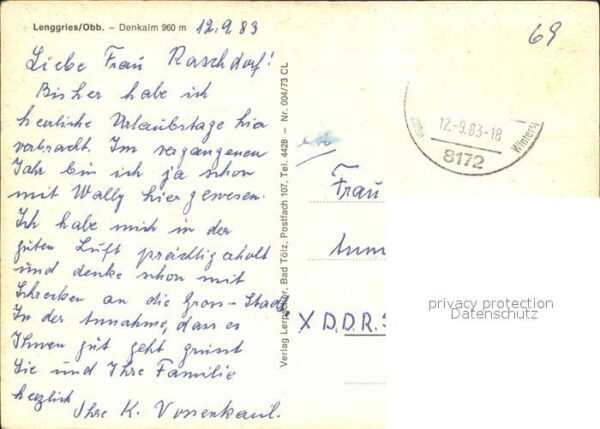 Lenggries/Obb. – Denkalm 960 m 12.9.83
69
Liebe Frau Raschdorf!
Bisher habe ich
herrliche Urlaubstage hier
verbracht. Im vergangenen
Jahr bin ich ja schon
mit Wally hier gewesen.
Ich habe mich in der
guten Luft prächtig erholt
und denke schon mit
Schrecken an die Gross-Stadt
In der Annahme, dass es
Ihnen gut geht grüsst
Sie und Ihre Familie
herzlich
Ihre K. Vossenkaul.
Verlag Lerpscher, Bad Tölz, Postfach 107, Tel. 4428 – Nr. 004/73 CL
12.-9.83-18
8172
Winterst
Frau
X D.D.R.
privacy protection
Datenschutz